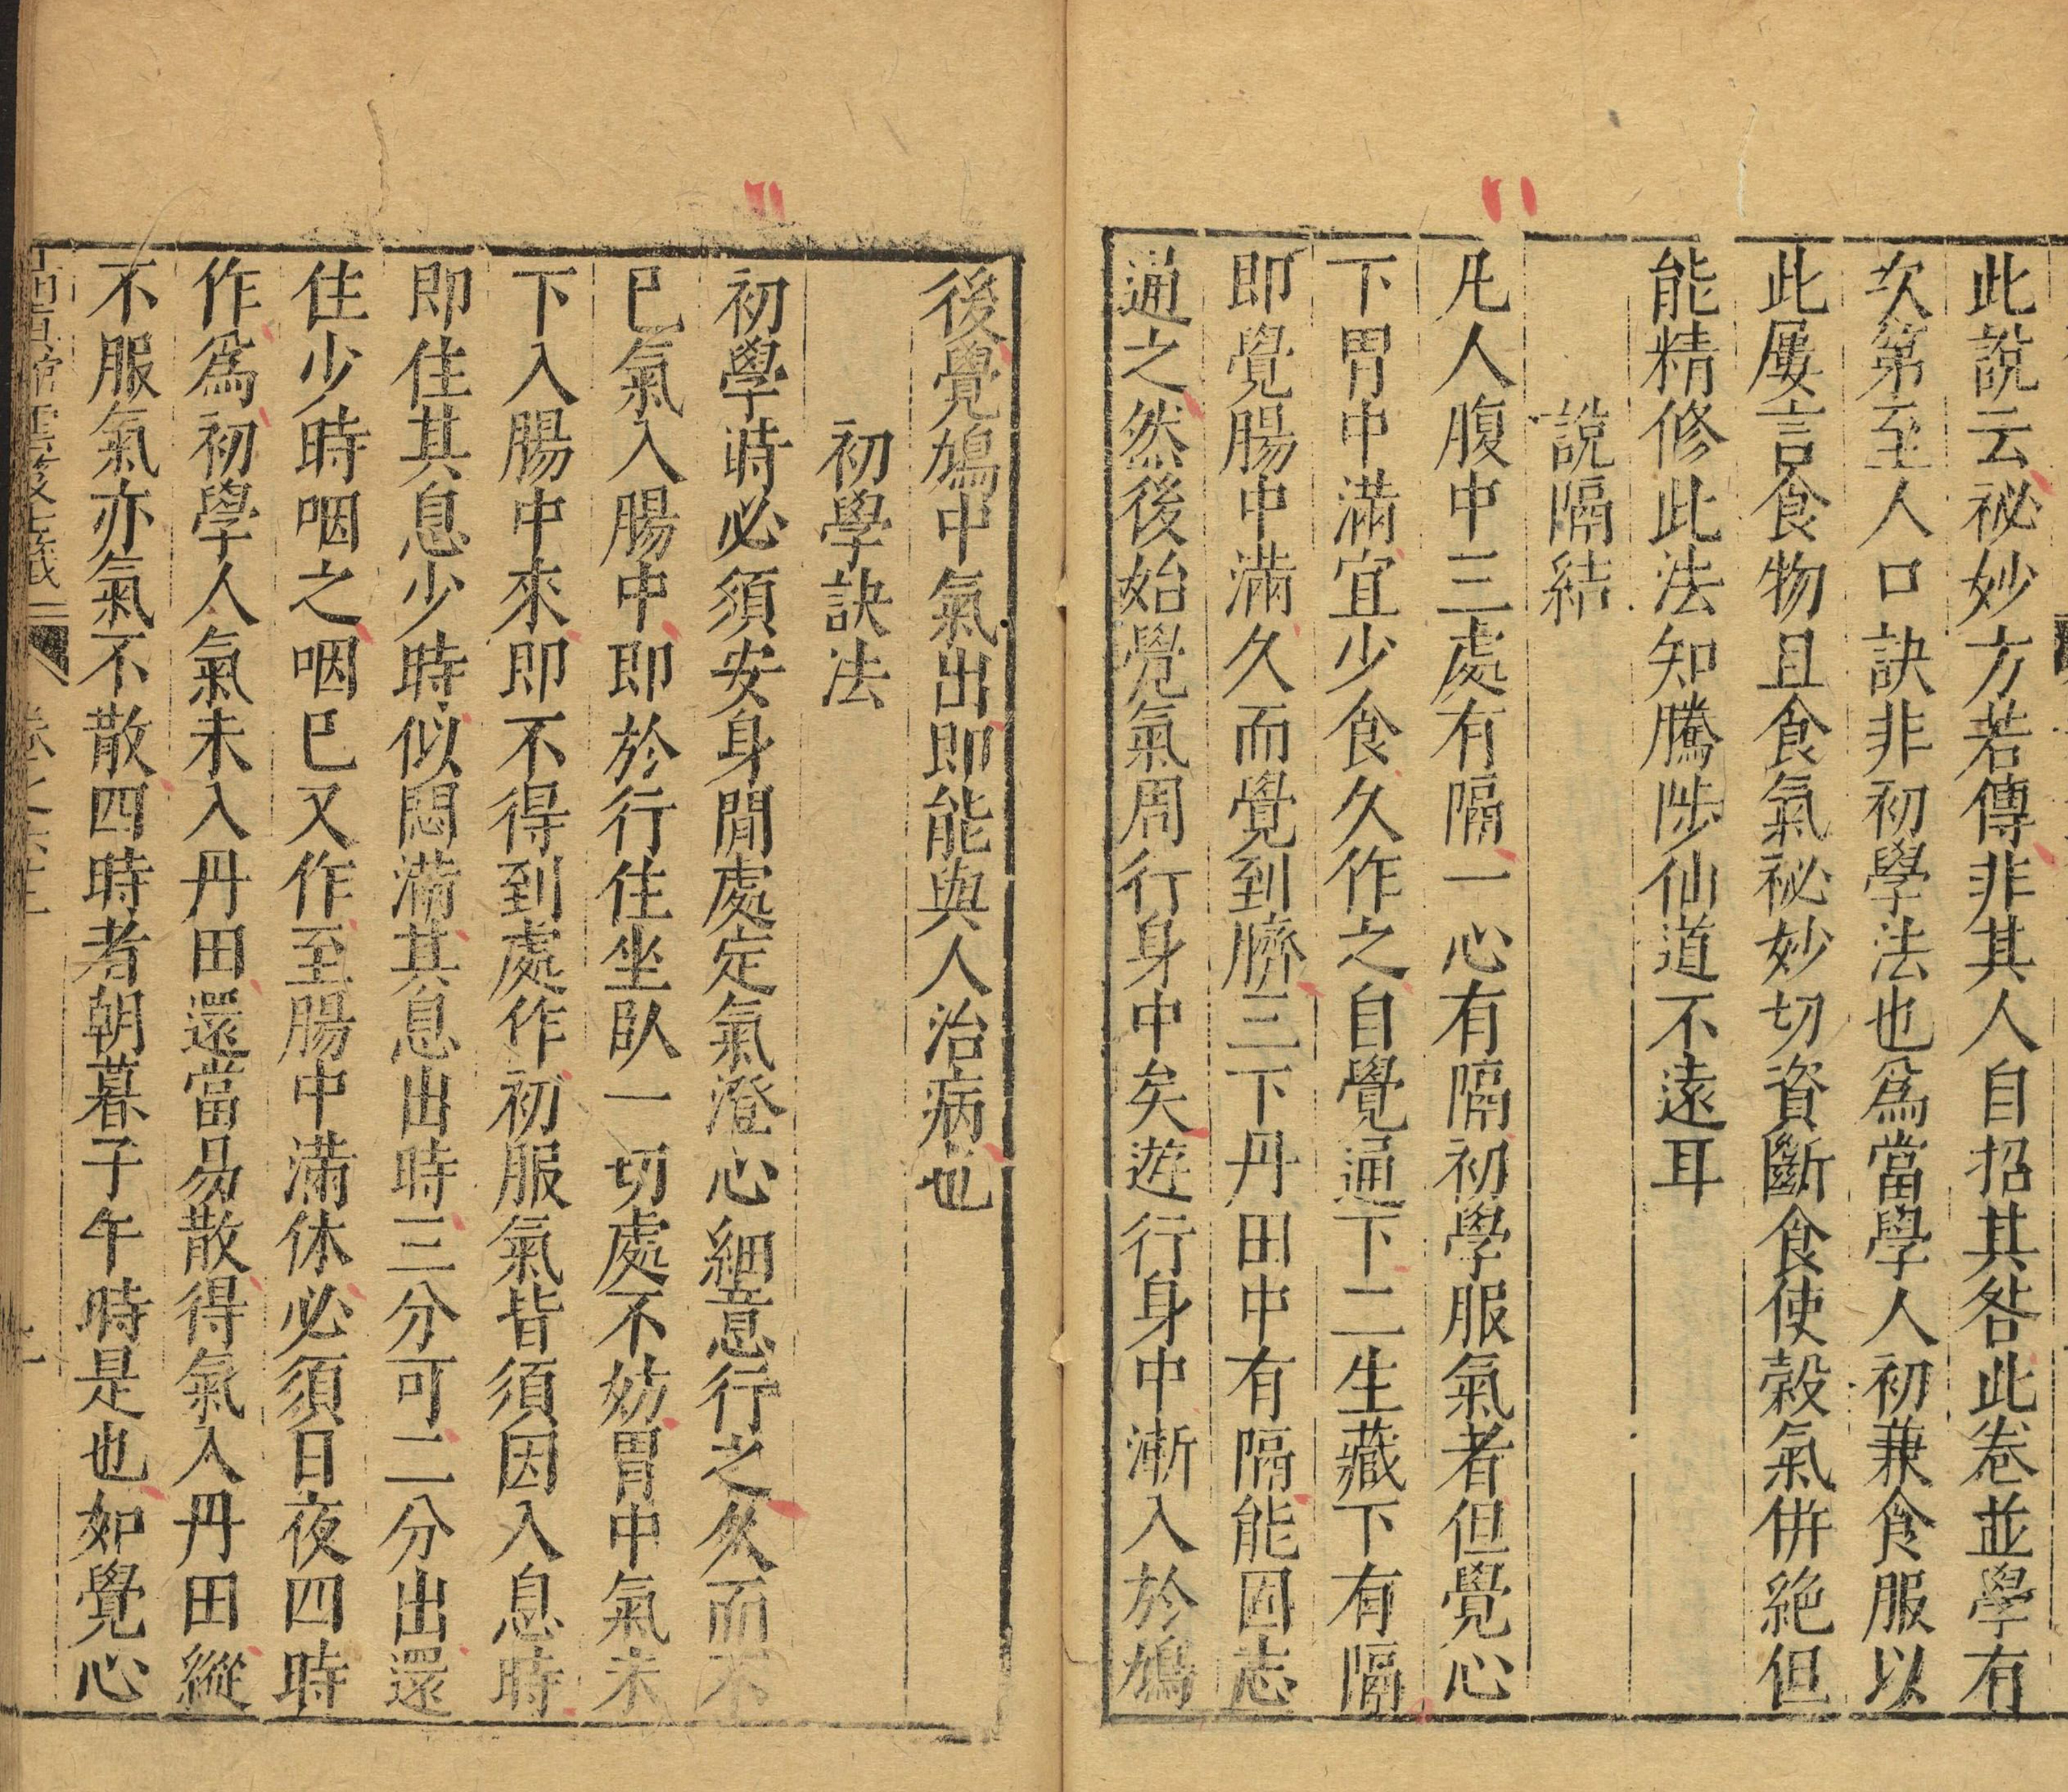 此說云祕妙方若傳非其人自招其咎此卷並學有
次第至人口訣非初學法也爲當學人初兼食服以
此屢言食物且食氣祕妙切資斷食使穀氣併絕但
能精修此法知騰陟仙道不遠耳
說隔結
凡人腹中三處有隔一心有隔初學服氣者但覺心
下胃中滿宜少食久作之自覺通下二生藏下有隔
即覺腸中滿久而覺到臍三下丹田中有隔能固志
通之然後始覺氣周行身中矣遊行身中漸入於鳩
後覺鳩中氣出即能與人治病也
初學訣法
初學時必須安身閒處定氣澄心細意行之久而不
已氣入腸中即於行住坐臥一切處不妨胃中氣未
下入腸中來即不得到處作初服氣皆須因入息時
即住其息少時似悶滿其息出時三分可二分出還
住少時咽之咽已又作至腸中滿休必須日夜四時
作爲初學人氣未入丹田還當易散得氣入丹田縱
不服氣亦氣不散四時者朝暮子午時是也如覺心